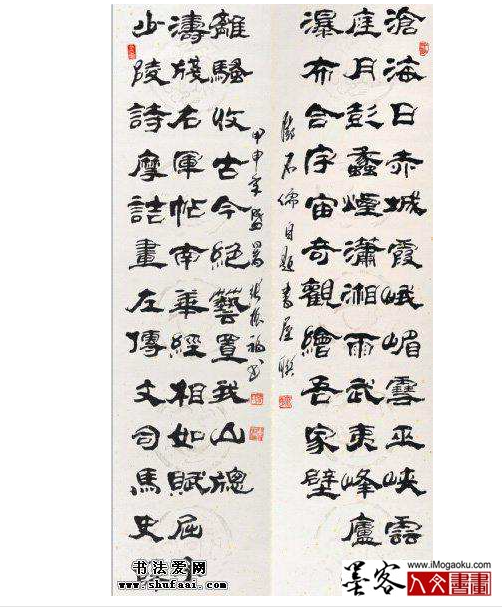 滄海日赤城霞峨嵋雪巫峽雲
庭月彭蠡煙瀟湘雨武夷峰廬
瀑布合宇宙奇觀繪吾家壁
鄧石儒自題書屋聯
少陵詩摩詰畫左傳文司馬史
濤牋右軍帖南華經相如賦屈
離騷收古今絕藝置我山窗
甲申年盛暑張振福书
书法爱网
www.shufaai.com
墨客
www.iMogaoku.com
人文書畫